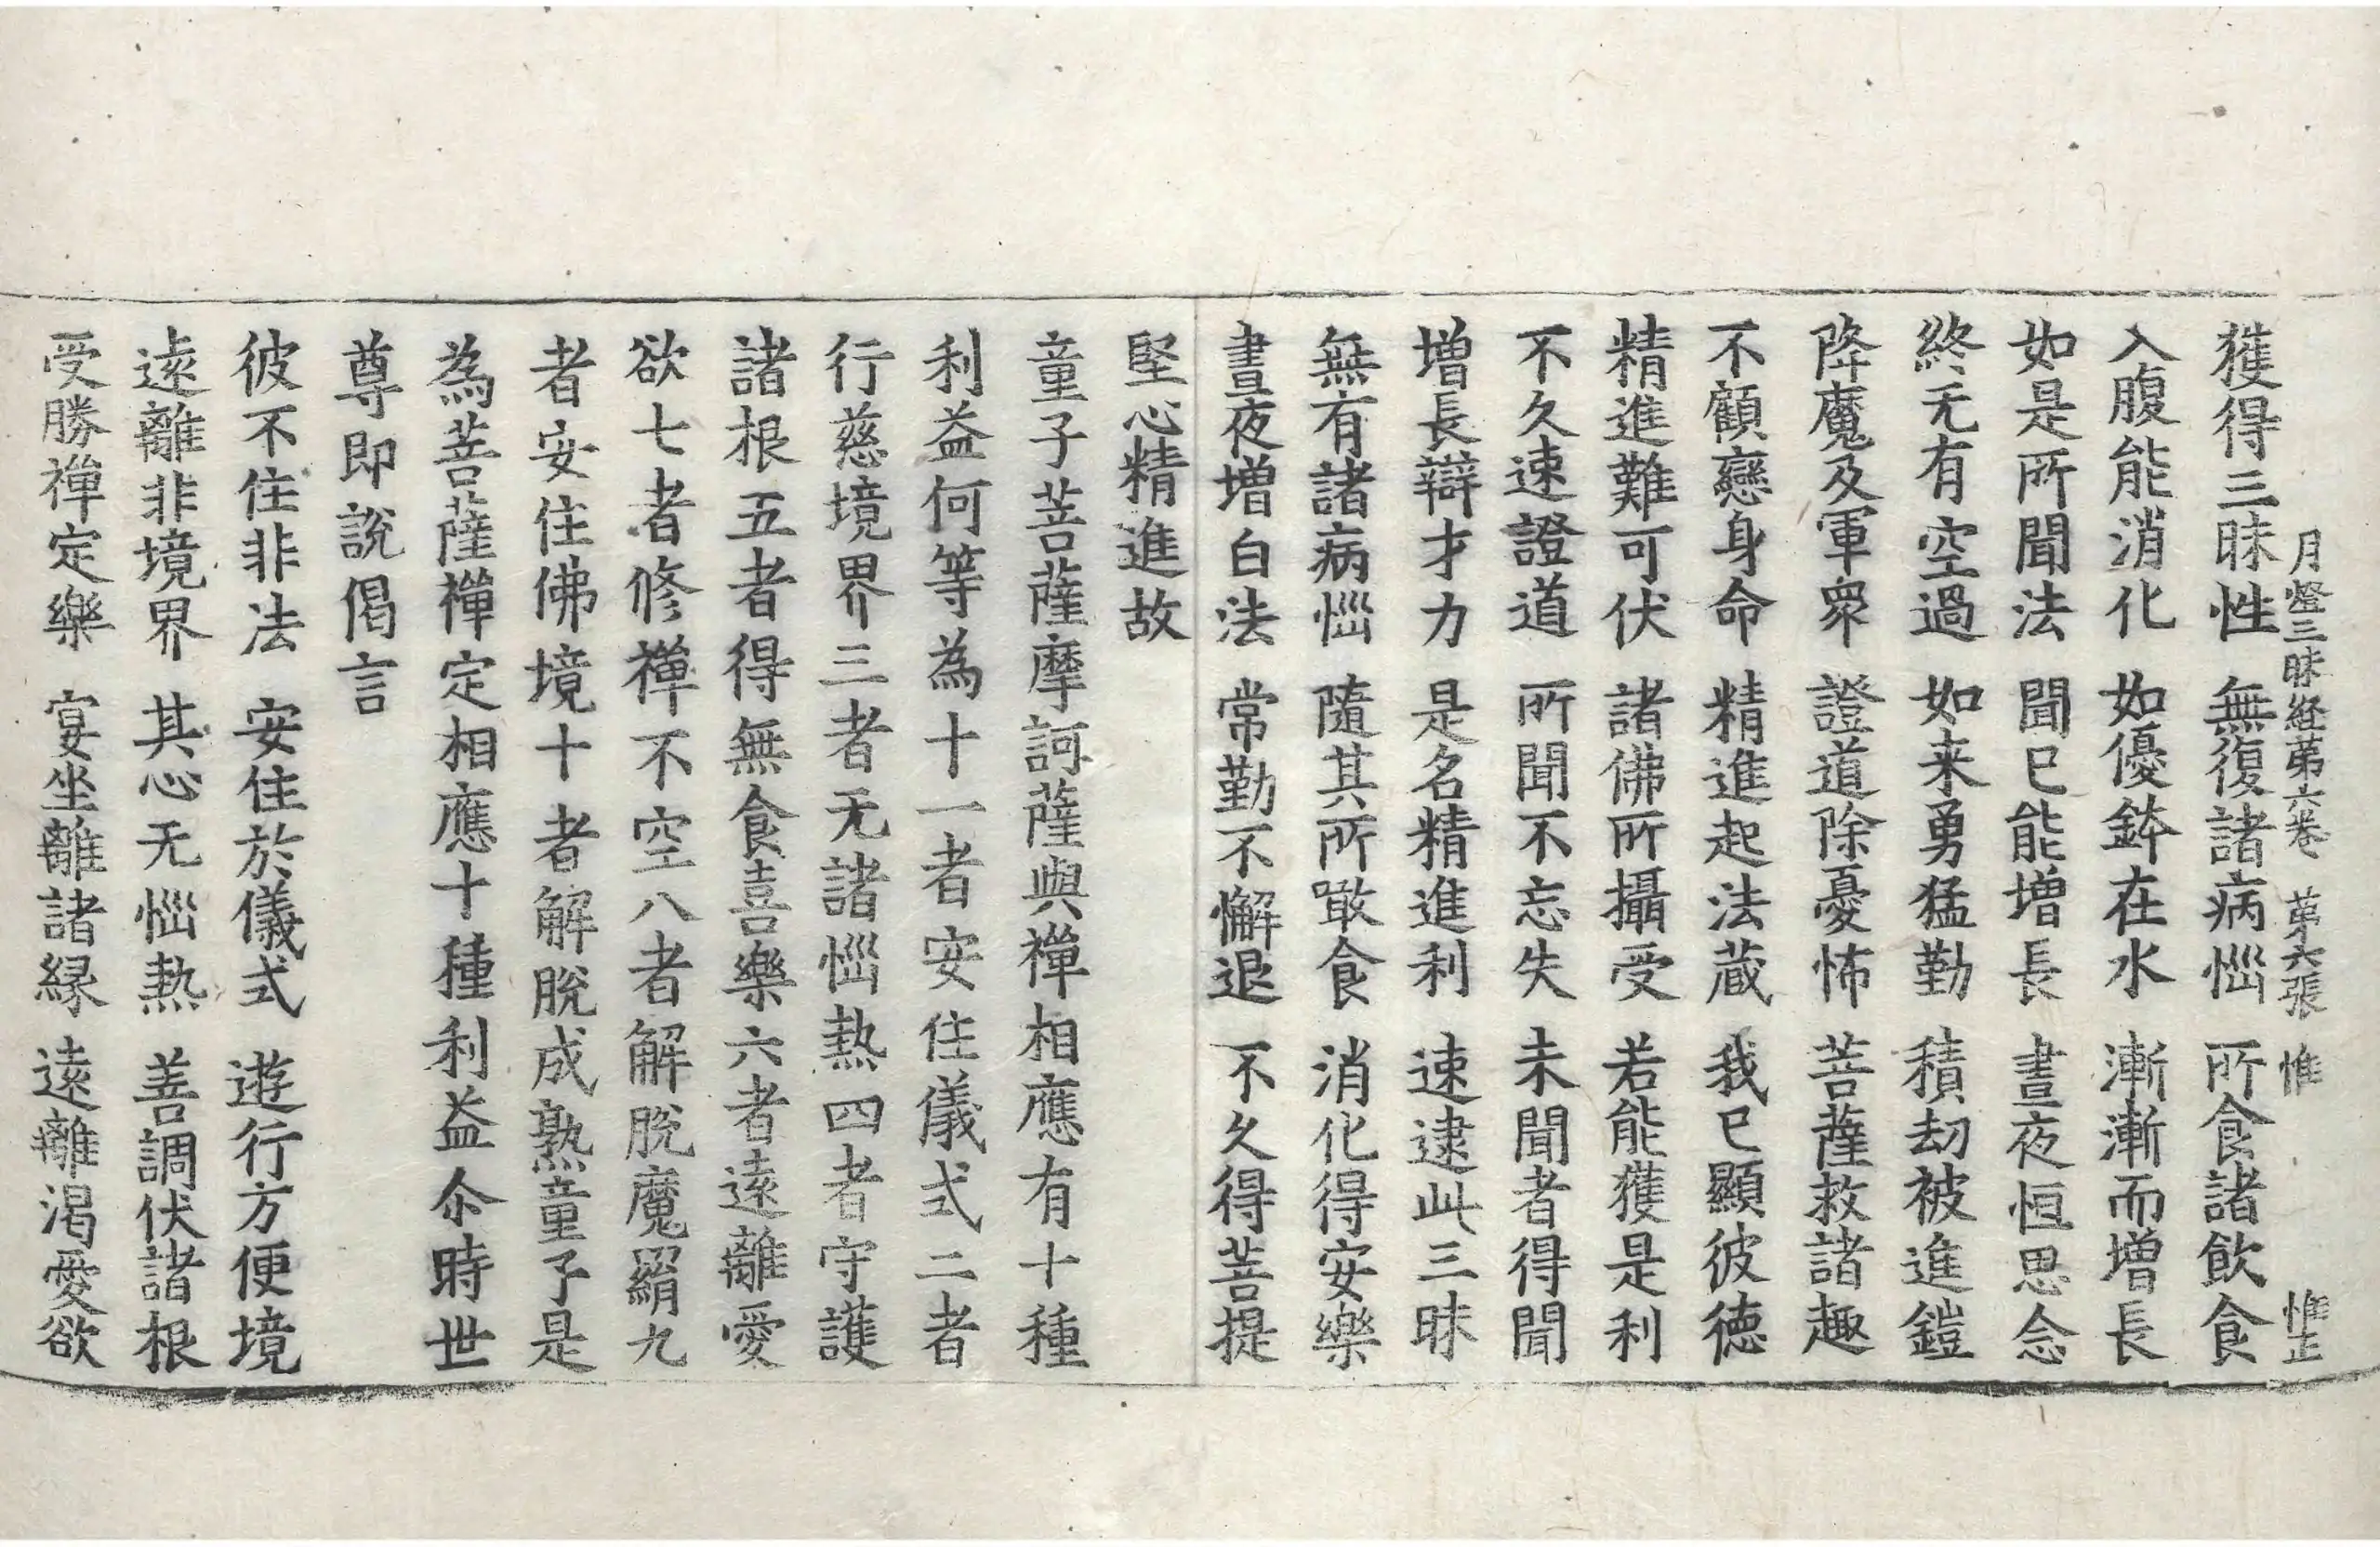 月燈三昧経第六卷　第六張　惟　惟正
獲得三昧性　無復諸病惱　所食諸飲食
入腹能消化　如優鉢在水　漸漸而增長
如是所聞法　聞已能增長　晝夜恒思念
終无有空過　如来勇猛勤　積劫被進鎧
降魔及軍衆　證道除憂怖　菩薩救諸趣
不顧戀身命　精進起法蔵　我已顯彼德
精進難可伏　諸佛所攝受　若能獲是利
不久速證道　所聞不忘失　未聞者得聞
增長辯才力　是名精進利　速逮此三昧
無有諸病惱　隨其所噉食　消化得安樂
晝夜增白法　常勤不懈退　不久得菩提
堅心精進故
童子菩薩摩訶薩與禪相應有十種
利益何等為十一者安住儀式二者
行慈境界三者无諸惱熱四者守護
諸根五者得無食喜樂六者遠離愛
欲七者修禪不空八者解脫魔羂九
者安住佛境十者解脫成熟童子是
為菩薩禪定相應十種利益尒時世
尊即說偈言
彼不住非法　安住於儀式　遊行方便境
遠離非境界　其心无惱熱　善調伏諸根
受勝禪定樂　宴坐離諸緣　遠離渴愛欲